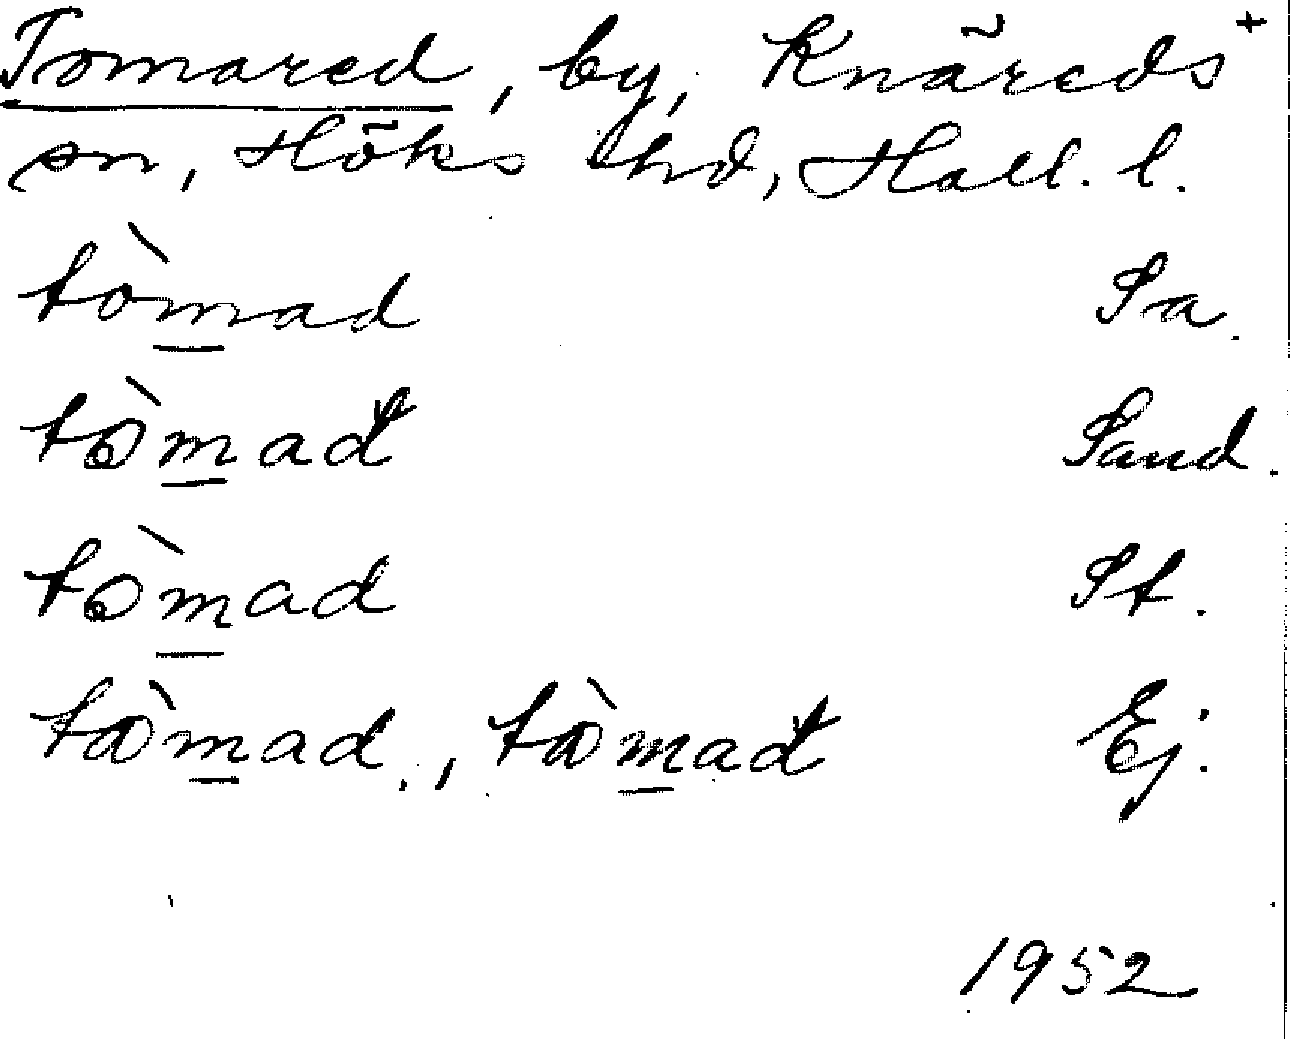 Tomared, by, Knäreds +
sn, Höks hd, Hall. l.
tòmad Sa.
tòmađ Sand.
tòmad St.
tòmad., tòmađ Ej.
1952